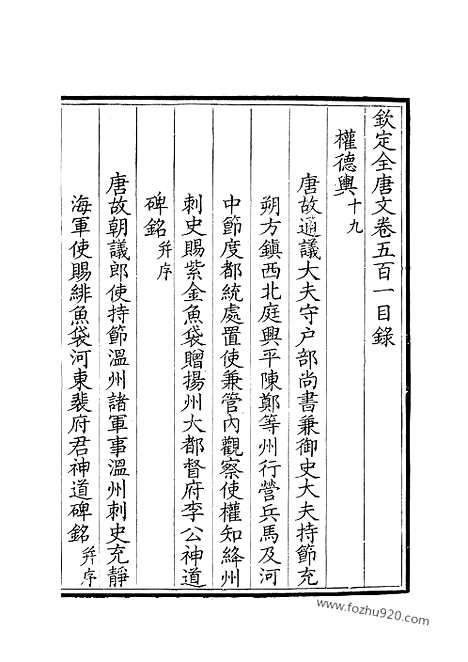 欽定全唐文卷五百一目錄
權德輿十九
唐故通議大夫守户部尚書兼御史大夫持節充
朔方鎮西北庭興平陳鄭等州行營兵馬及河
中節度都統處置使兼管内觀察使權知絳州
刺史賜紫金魚袋贈揚州大都督府李公神道
碑銘并序
唐故朝議郎使持節溫州諸軍事溫州刺史充靜
海軍使賜緋魚袋河東裴府君神道碑銘并序
www.fozhu920.com